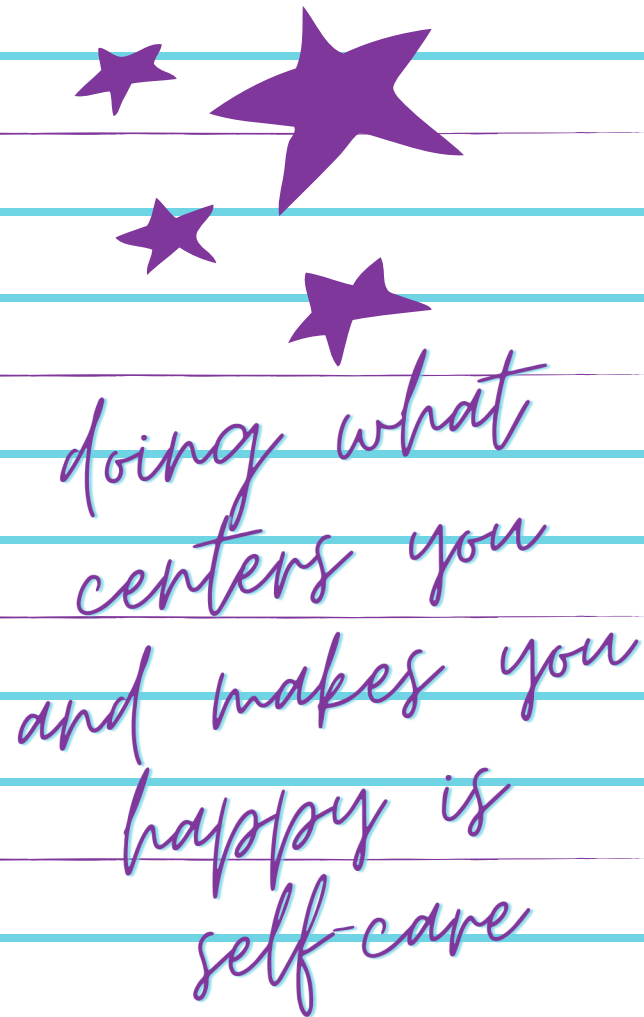 doing what
centers you
and makes you
happy is
self-care